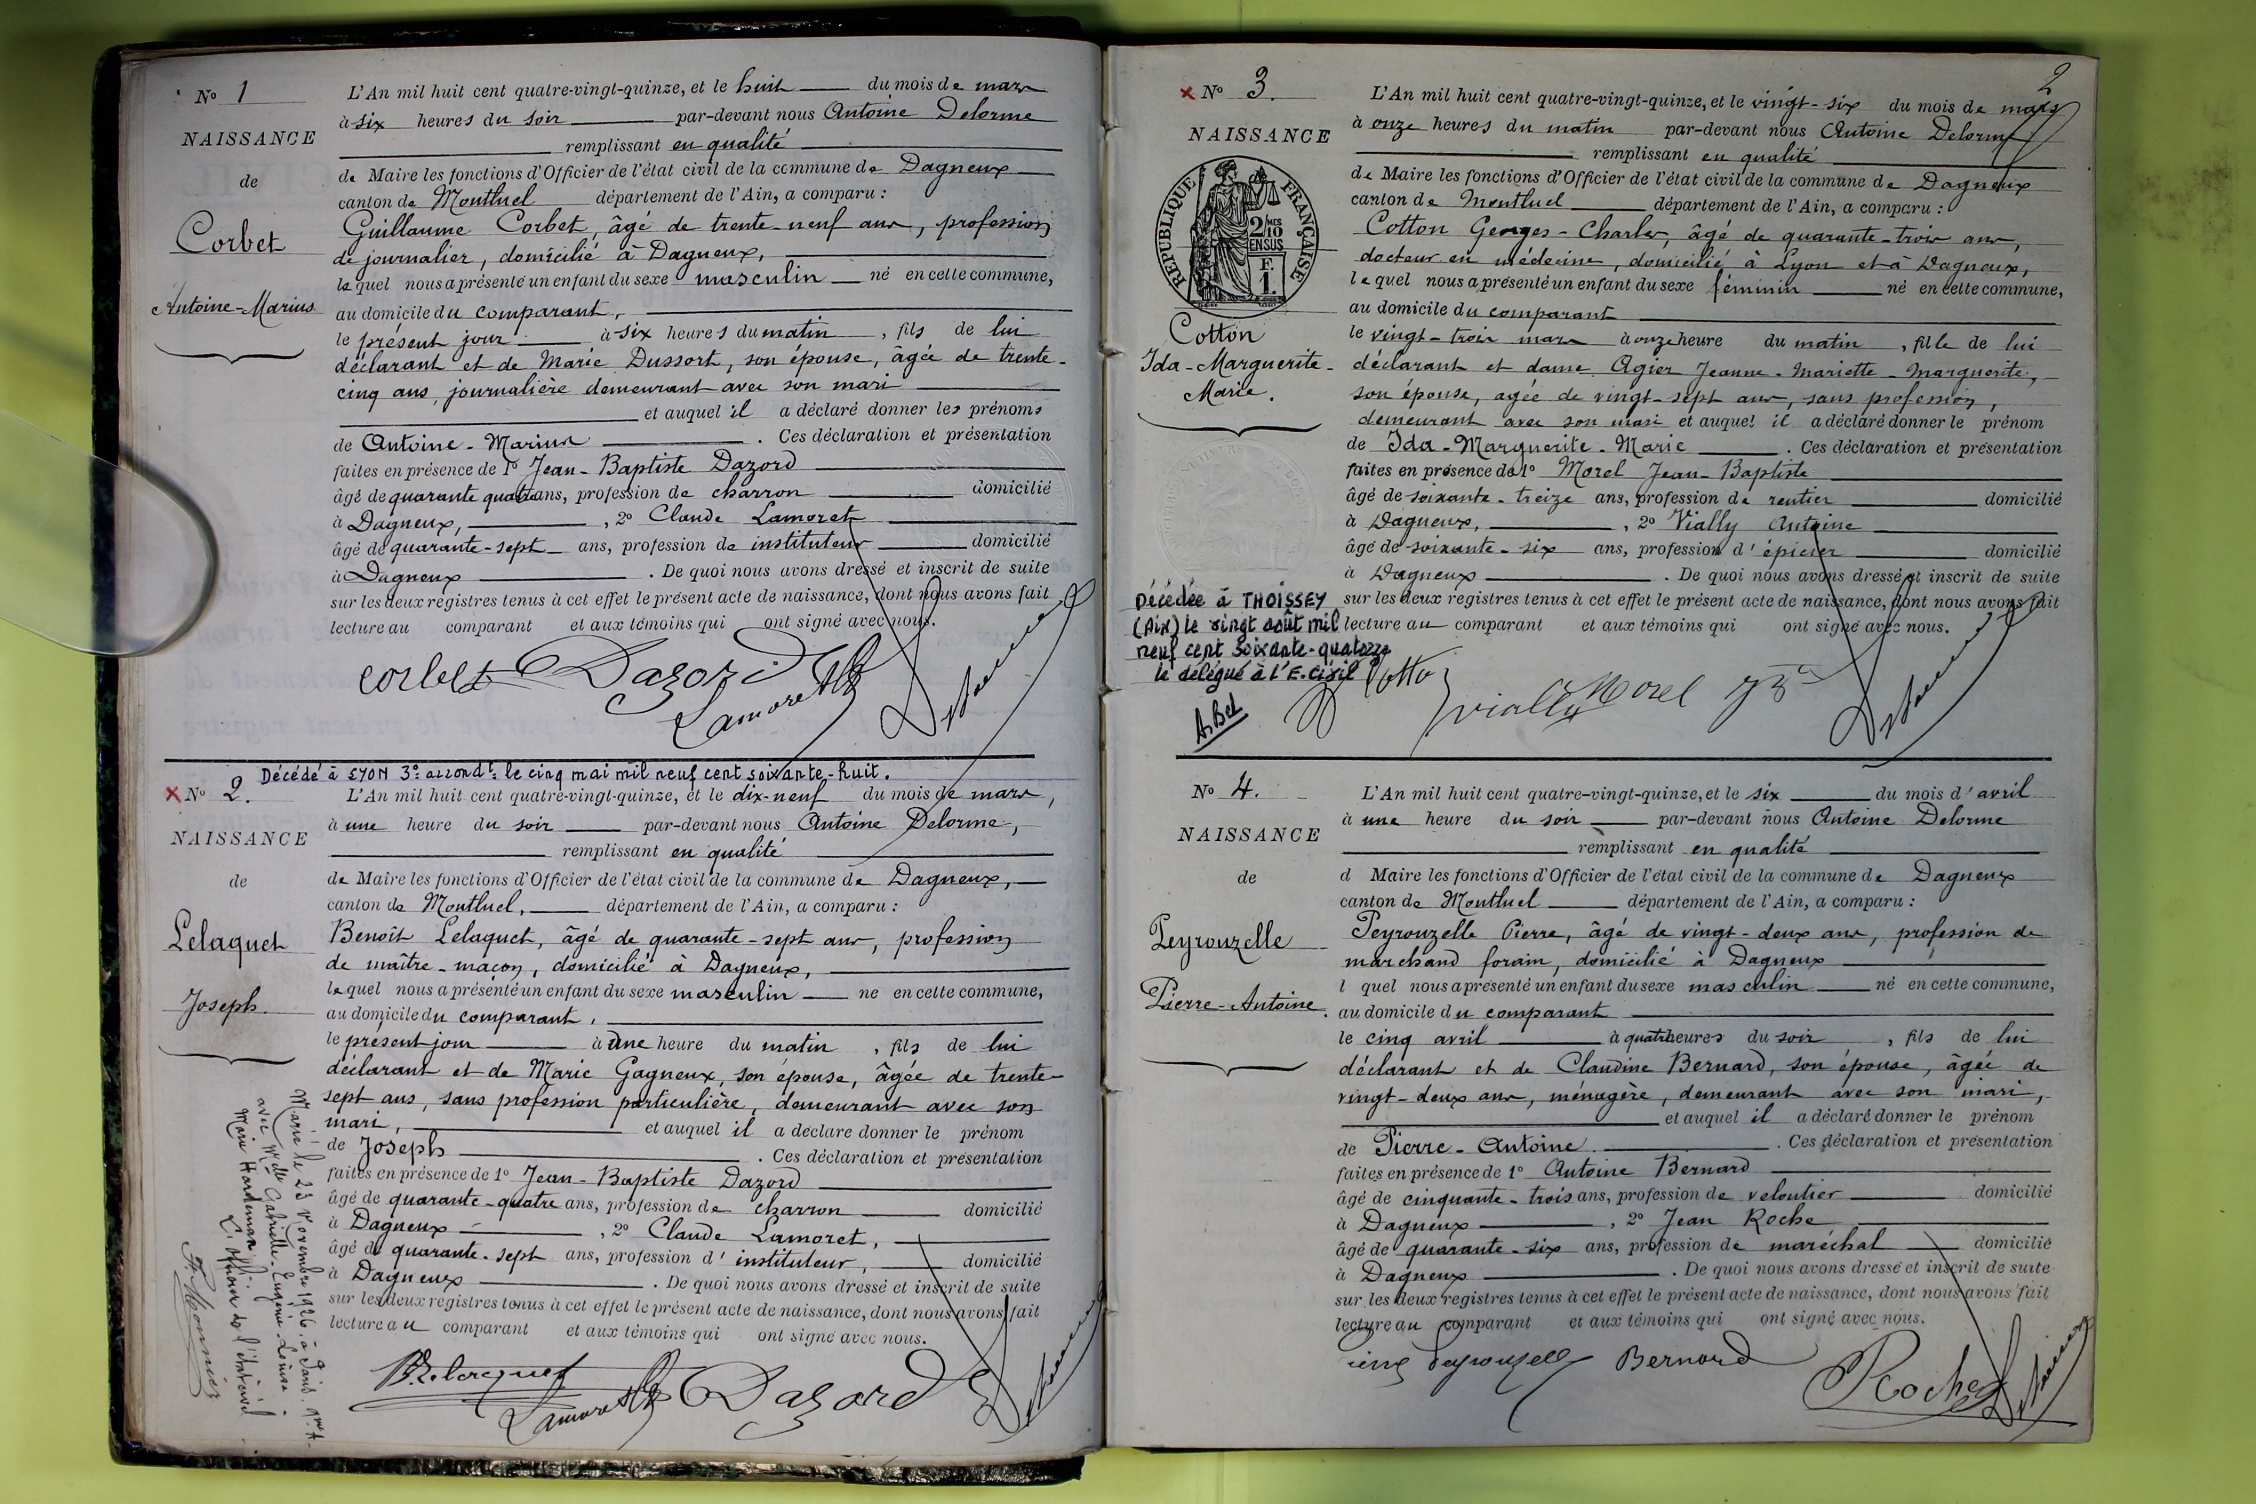 Nº 1
NAISSANCE
de
Corbet
Antoine-Marius
L'An mil huit cent quatre-vingt-quinze, et le huit du mois de mars
à six heures du soir par-devant nous Antoine Delorme
remplissant en qualité
de Maire les fonctions d'Officier de l'état civil de la commune de Dagneux
canton de Montluel département de l'Ain, a comparu :
Guillaume Corbet, âgé de trente-neuf ans, profession
de journalier, domicilié à Dagneux,
lequel nous a présenté un enfant du sexe masculin né en cette commune,
au domicile du comparant,
le présent jour à six heures du matin, fils de lui
déclarant et de Marie Dussort, son épouse, âgée de trente-
cinq ans, journalière demeurant avec son mari
et auquel il a déclaré donner les prénoms
de Antoine-Marius. Ces déclaration et présentation
faites en présence de 1º Jean-Baptiste Dazord
âgé de quarante quatre ans, profession de charron domicilié
à Dagneux, , 2º Claude Lamoret
âgé de quarante-sept ans, profession de instituteur domicilié
à Dagneux . De quoi nous avons dressé et inscrit de suite
sur les deux registres tenus à cet effet le présent acte de naissance, dont nous avons fait
lecture au comparant et aux témoins qui ont signé avec nous.
corbet Dazord Lamoret Delorme
Décédé à LYON 3e: arrondt: le cinq mai mil neuf cent soixante-huit.
Nº 2.
NAISSANCE
de
Lelaquet
Joseph
Marié le 23 Novembre 1926. à Paris. 1er A-
avec Melle Gabrielle-Eugénie-Louise-
Marie Hardeman
L'officier de l'état civil
L'An mil huit cent quatre-vingt-quinze, et le dix-neuf du mois de mars,
à une heure du soir par-devant nous Antoine Delorme,
remplissant en qualité
de Maire les fonctions d'Officier de l'état civil de la commune de Dagneux,
canton de Montluel, département de l'Ain, a comparu :
Benoît Lelaquet, âgé de quarante-sept ans, profession
de maître-maçon, domicilié à Dagneux,
lequel nous a présenté un enfant du sexe masculin né en cette commune,
au domicile du comparant,
le présent jour à une heure du matin, fils de lui
déclarant et de Marie Gagneux, son épouse, âgée de trente-
sept ans, sans profession particulière, demeurant avec son
mari, et auquel il a déclaré donner le prénom
de Joseph . Ces déclaration et présentation
faites en présence de 1º Jean-Baptiste Dazord
âgé de quarante-quatre ans, profession de charron domicilié
à Dagneux , 2º Claude Lamoret,
âgé de quarante-sept ans, profession d'instituteur, domicilié
à Dagneux . De quoi nous avons dressé et inscrit de suite
sur les deux registres tenus à cet effet le présent acte de naissance, dont nous avons fait
lecture au comparant et aux témoins qui ont signé avec nous.
B. Lelaquet Lamoret Dazord Delorme
2
Nº 3.
NAISSANCE
RÉPUBLIQUE FRANÇAISE
2/10 EN SUS
F. 1.
Cotton
Ida-Marguerite-
Marie.
Décédée à THOISSEY
(Ain) le vingt août mil
neuf cent soixante-quatorze
le délégué à l'E. Civil
L'An mil huit cent quatre-vingt-quinze, et le vingt-six du mois de mars
à onze heures du matin par-devant nous Antoine Delorme
remplissant en qualité
de Maire les fonctions d'Officier de l'état civil de la commune de Dagneux
canton de Montluel département de l'Ain, a comparu :
Cotton Georges-Charles, âgé de quarante-trois ans,
docteur en médecine, domicilié à Lyon et à Dagneux,
lequel nous a présenté un enfant du sexe féminin né en cette commune,
au domicile du comparant
le vingt-trois mars à onze heure du matin, fille de lui
déclarant et dame Agier Jeanne-Mariette-Marguerite,
son épouse, agée de vingt-sept ans, sans profession,
demeurant avec son mari et auquel il a déclaré donner le prénom
de Ida-Marguerite-Marie . Ces déclaration et présentation
faites en présence de 1º Morel Jean-Baptiste
âgé de soixante-treize ans, profession de rentier domicilié
à Dagneux, , 2º Vially Antoine
âgé de soixante-six ans, profession d'épicier domicilié
à Dagneux . De quoi nous avons dressé et inscrit de suite
sur les deux registres tenus à cet effet le présent acte de naissance, dont nous avons fait
lecture au comparant et aux témoins qui ont signé avec nous.
Cotton vially Morel Delorme
Nº 4.
NAISSANCE
de
Peyrouzelle
Pierre-Antoine.
L'An mil huit cent quatre-vingt-quinze, et le six du mois d'avril
à une heure du soir par-devant nous Antoine Delorme
remplissant en qualité
d Maire les fonctions d'Officier de l'état civil de la commune de Dagneux
canton de Montluel département de l'Ain, a comparu :
Peyrouzelle Pierre, âgé de vingt-deux ans, profession de
marchand forain, domicilié à Dagneux
l quel nous a présenté un enfant du sexe masculin né en cette commune,
au domicile du comparant
le cinq avril à quatre heures du soir, fils de lui
déclarant et de Claudine Bernard, son épouse, âgée de
vingt-deux ans, ménagère, demeurant avec son mari,
et auquel il a déclaré donner le prénom
de Pierre-Antoine . Ces déclaration et présentation
faites en présence de 1º Antoine Bernard
âgé de cinquante-trois ans, profession de veloutier domicilié
à Dagneux , 2º Jean Roche
âgé de quarante-six ans, profession de maréchal domicilié
à Dagneux . De quoi nous avons dressé et inscrit de suite
sur les deux registres tenus à cet effet le présent acte de naissance, dont nous avons fait
lecture au comparant et aux témoins qui ont signé avec nous.
Bernard Roche Delorme